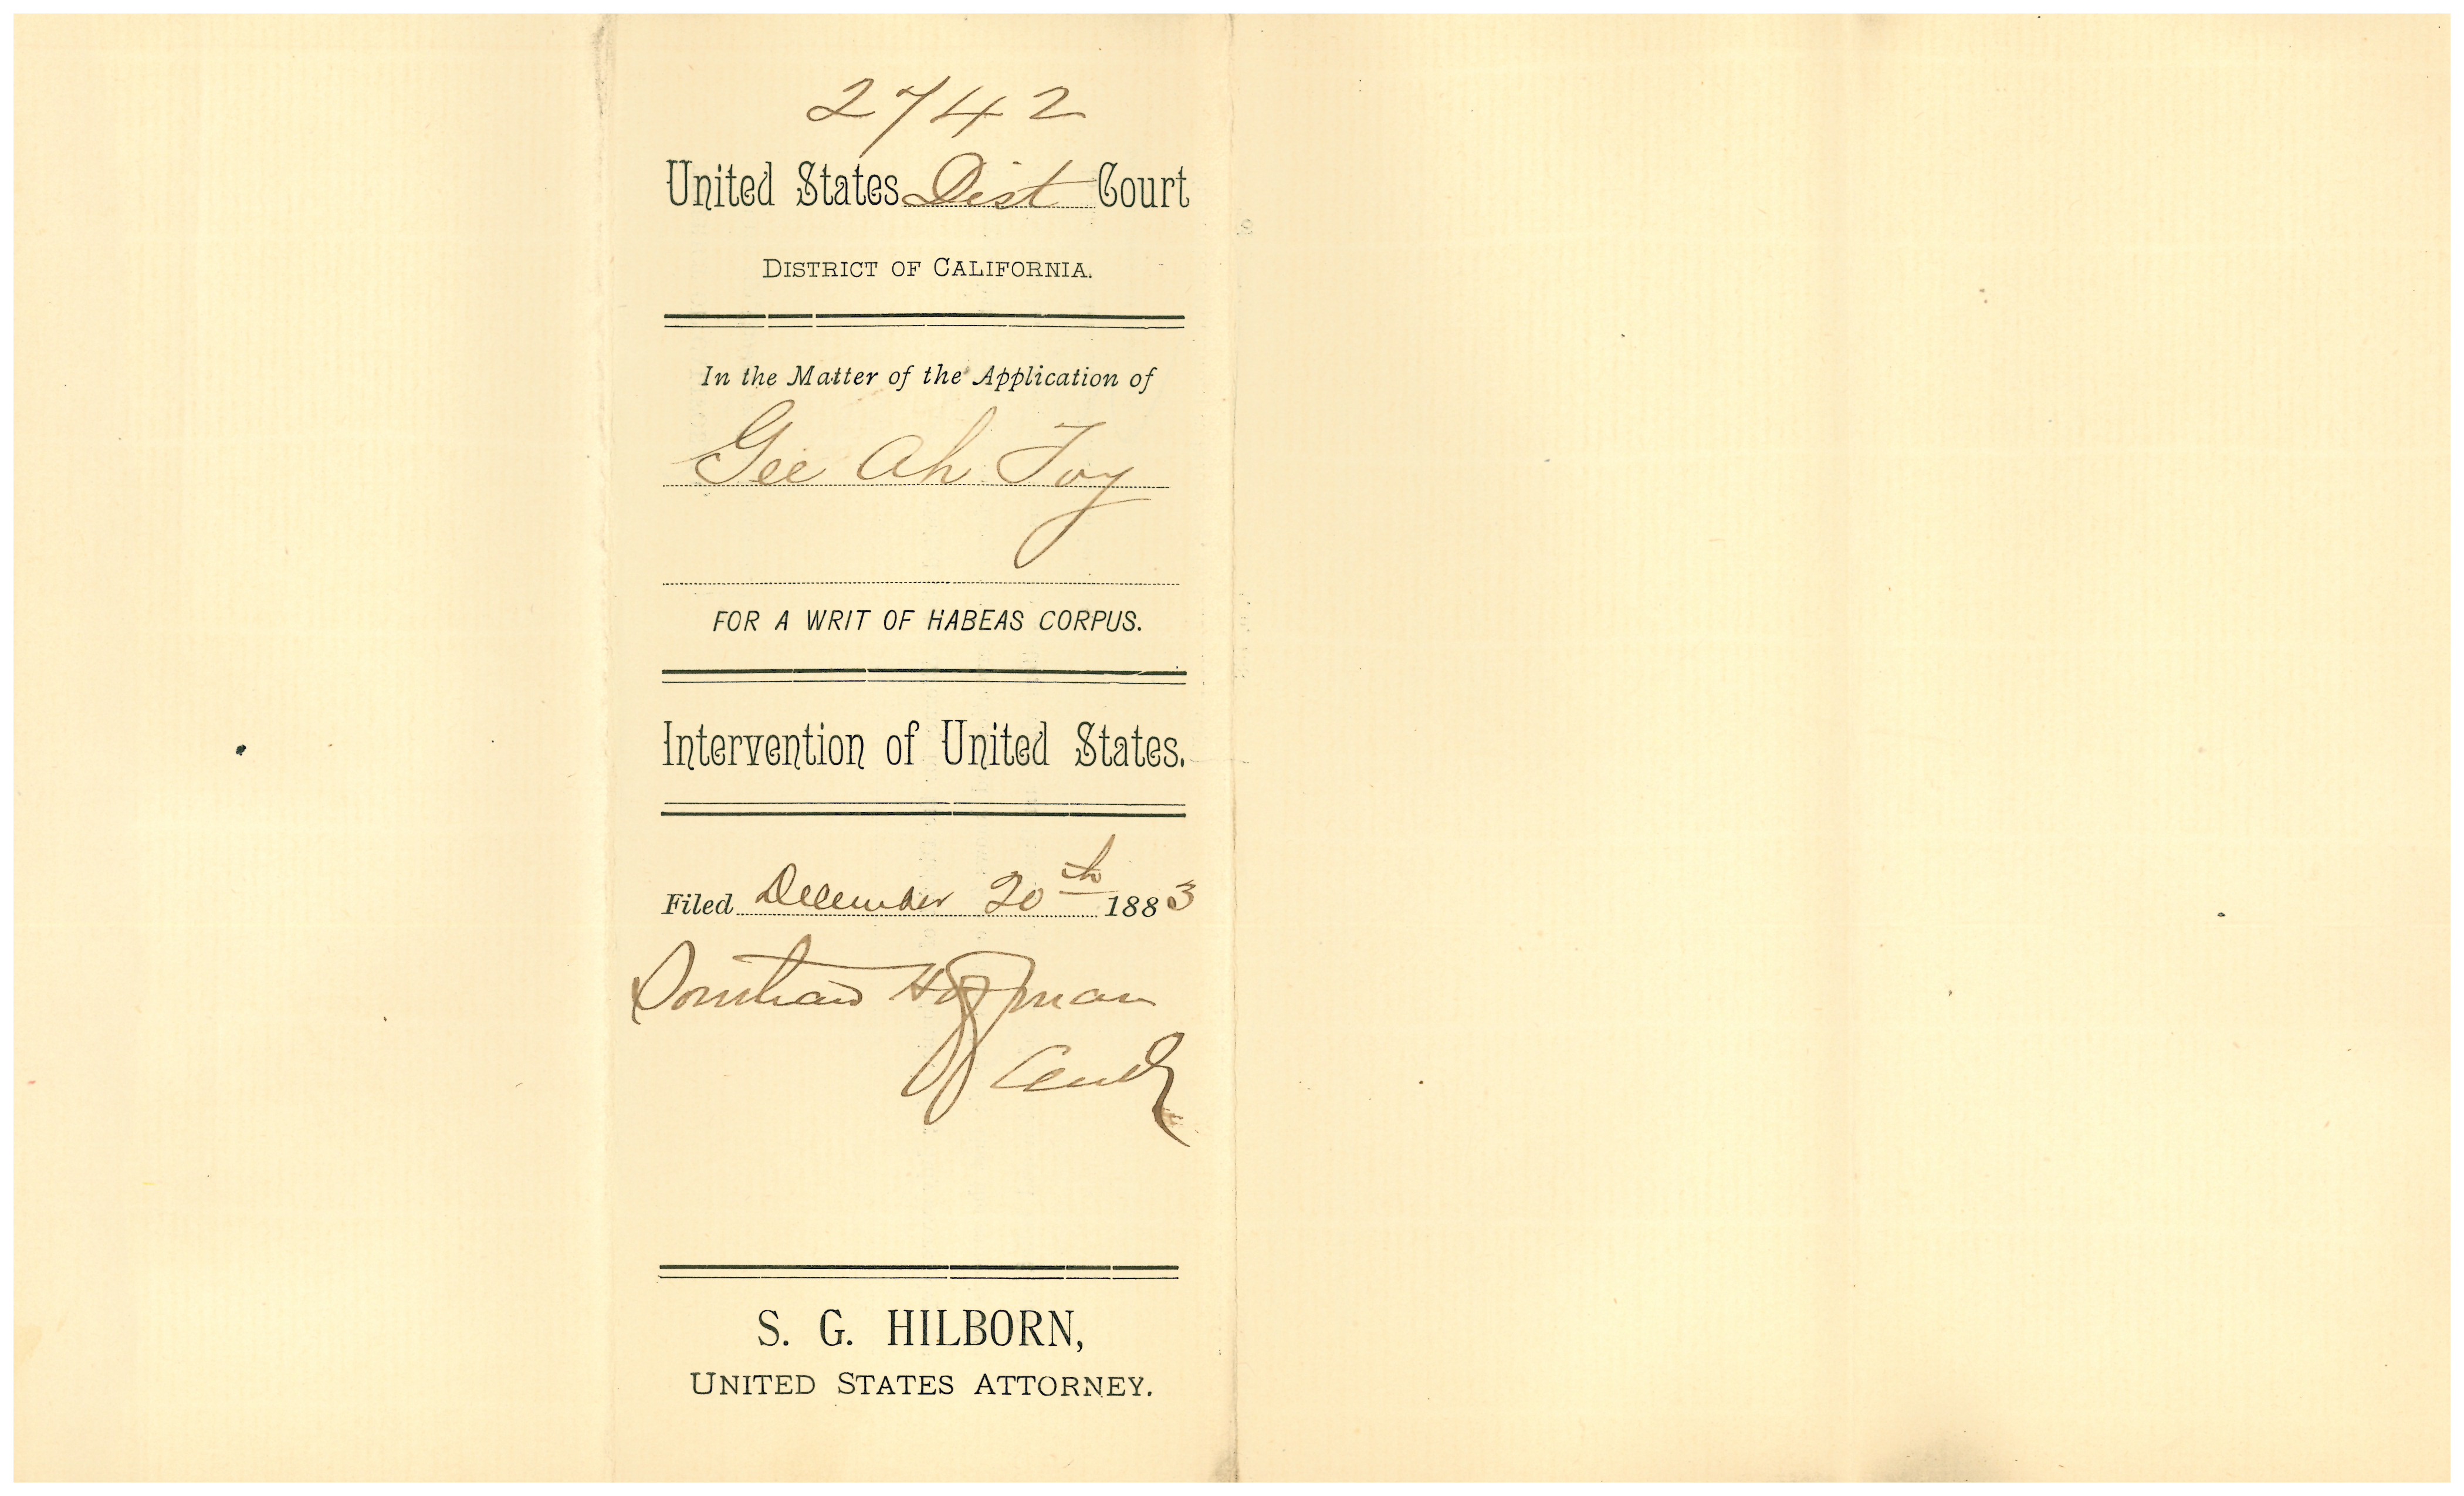 2742
United States Dist Court
DISTRICT OF CALIFORNIA.
In the Matter of the Application of
Gee Ah Toy
FOR A WRIT OF HABEAS CORPUS.
Intervention of United States.
Filed December 20th 1883
Hoffman
Clerk
S. G. HILBORN,
UNITED STATES ATTORNEY.